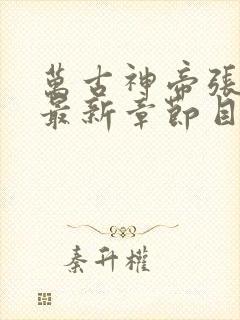 萬古神帝張
最新章節目
秦升權